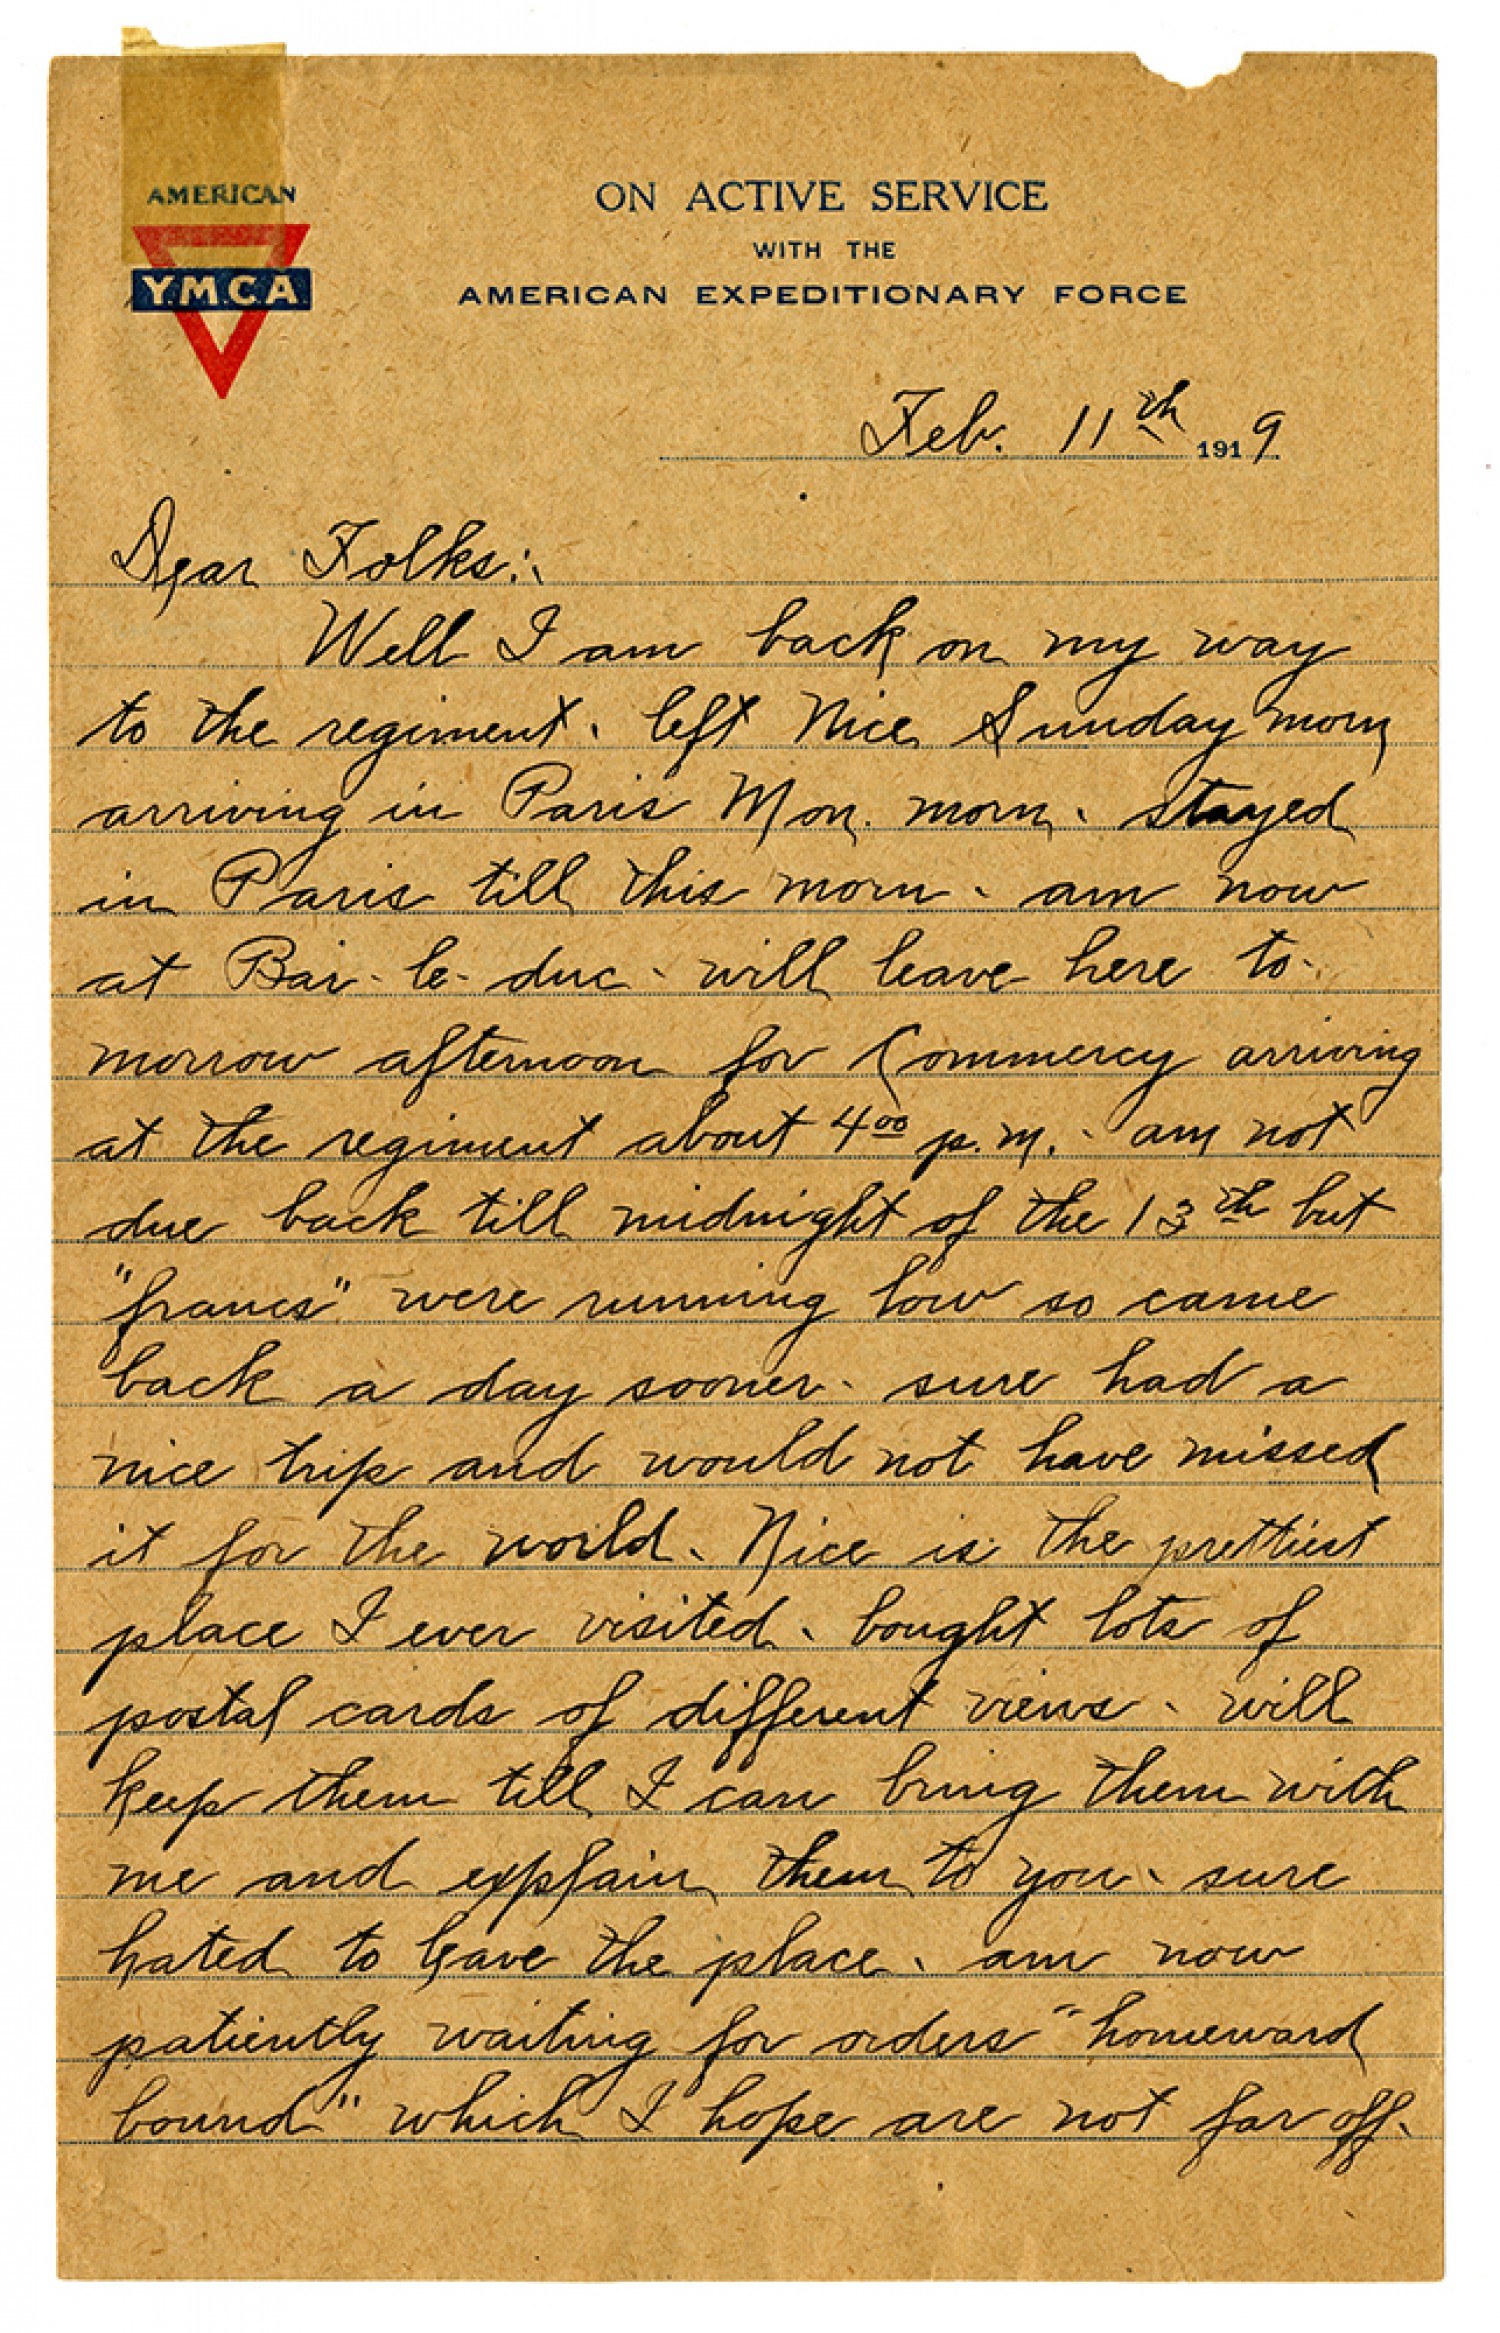 AMERICAN
Y.M.C.A
ON ACTIVE SERVICE
WITH THE
AMERICAN EXPEDITIONARY FORCE
Feb. 11th 1919
Dear Folks:.
Well I am back on my way
to the regiment. left Nice Sunday morn
arriving in Paris Mon. morn. stayed
in Paris till this morn. am now
at Bar-le-duc. will leave here to-
morrow afternoon for Commercy arriving
at the regiment about 4 00 p.m. am not
due back till midnight of the 13th but
"francs" were running low so came
back a day sooner. sure had a
nice trip and would not have missed
it for the world. Nice is the prettiest
place I ever visited. bought lots of
postal cards of different views. will
keep them till I can bring them with
me and explain them to you. sure
hated to leave the place. am now
patiently waiting for orders "homeward
bound" which I hope are not far off.